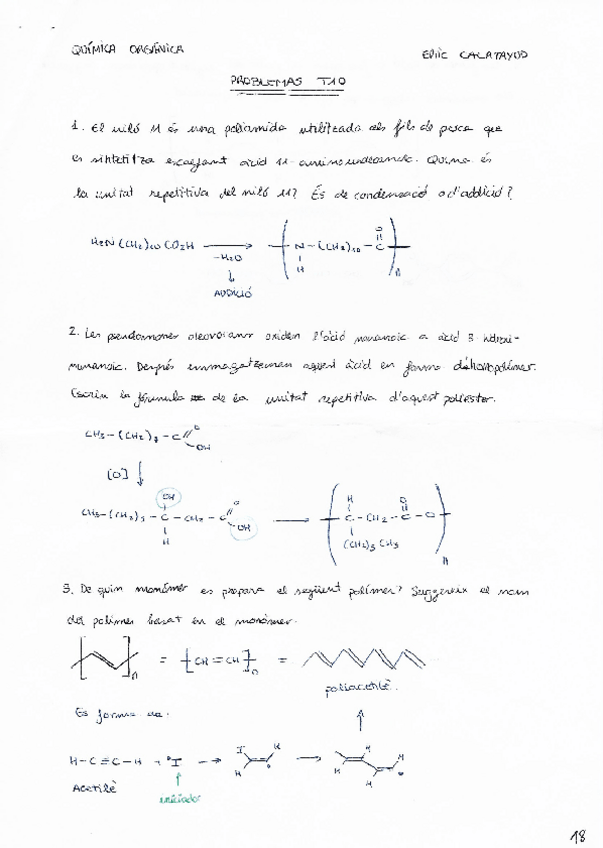 QUÍMICA ORGÀNICA
CALATAYUD
PROBLEMAS T10
1. El niló 11 és una poliamida utilitzada als fils de pesca que
es sintetitza escalfant àcid 11-aminoundecanoic. Quina és
la unitat repetitiva del niló 11? És de condensació o d'addició?
H2N (CH2)10 CO2H
-H2O
N-(CH2)10-C
O
H
n
ADDICIÓ
2. Les pseudomones oleovorans oxiden l'àcid nonanoic a àcid 3-hidroxi-
nonanoic. Després emmagatzemen aquest àcid en forma d'homopolímer.
Escriu la fórmula de la unitat repetitiva d'aquest polièster.
CH3-(CH2)7-C
O
OH
[O]
OH
CH3-(CH2)5-C-CH2-C
O
OH
H
H
O
C-CH2-C-O
(CH2)5CH3
n
3. De quin monòmer es prepara el següent polímer? Suggereix el nom
del polímer basat en el monòmer.
n
= [CH=CH]n =
poliacetilè.
Es forma de.
H-C≡C-H + •I
Acetilè
iniciador
I
H
H
H
H
H
H
18